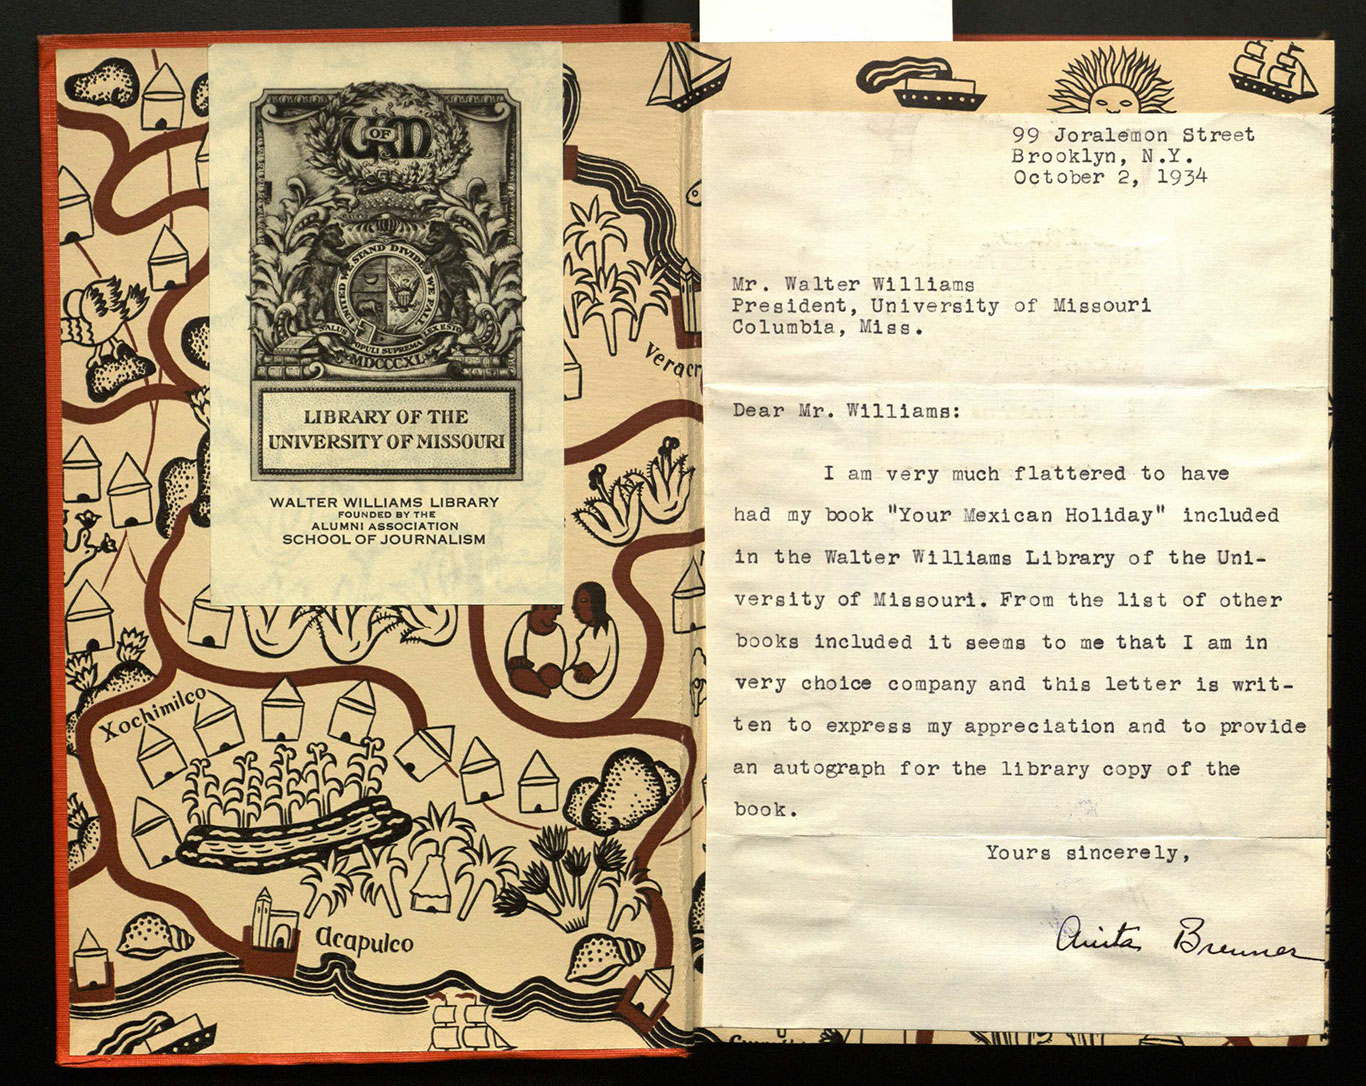 U OF M
UNITED WE STAND DIVIDED WE FALL
SALUS POPULI SUPREMA LEX ESTO
MDCCCXL
LIBRARY OF THE
UNIVERSITY OF MISSOURI
WALTER WILLIAMS LIBRARY
FOUNDED BY THE
ALUMNI ASSOCIATION
SCHOOL OF JOURNALISM
Xochimilco
Acapulco
99 Joralemon Street
Brooklyn, N.Y.
October 2, 1934
Mr. Walter Williams
President, University of Missouri
Columbia, Miss.
Dear Mr. Williams:
I am very much flattered to have
had my book "Your Mexican Holiday" included
in the Walter Williams Library of the Uni-
versity of Missouri. From the list of other
books included it seems to me that I am in
very choice company and this letter is writ-
ten to express my appreciation and to provide
an autograph for the library copy of the
book.
Yours sincerely,
Anita Brenner